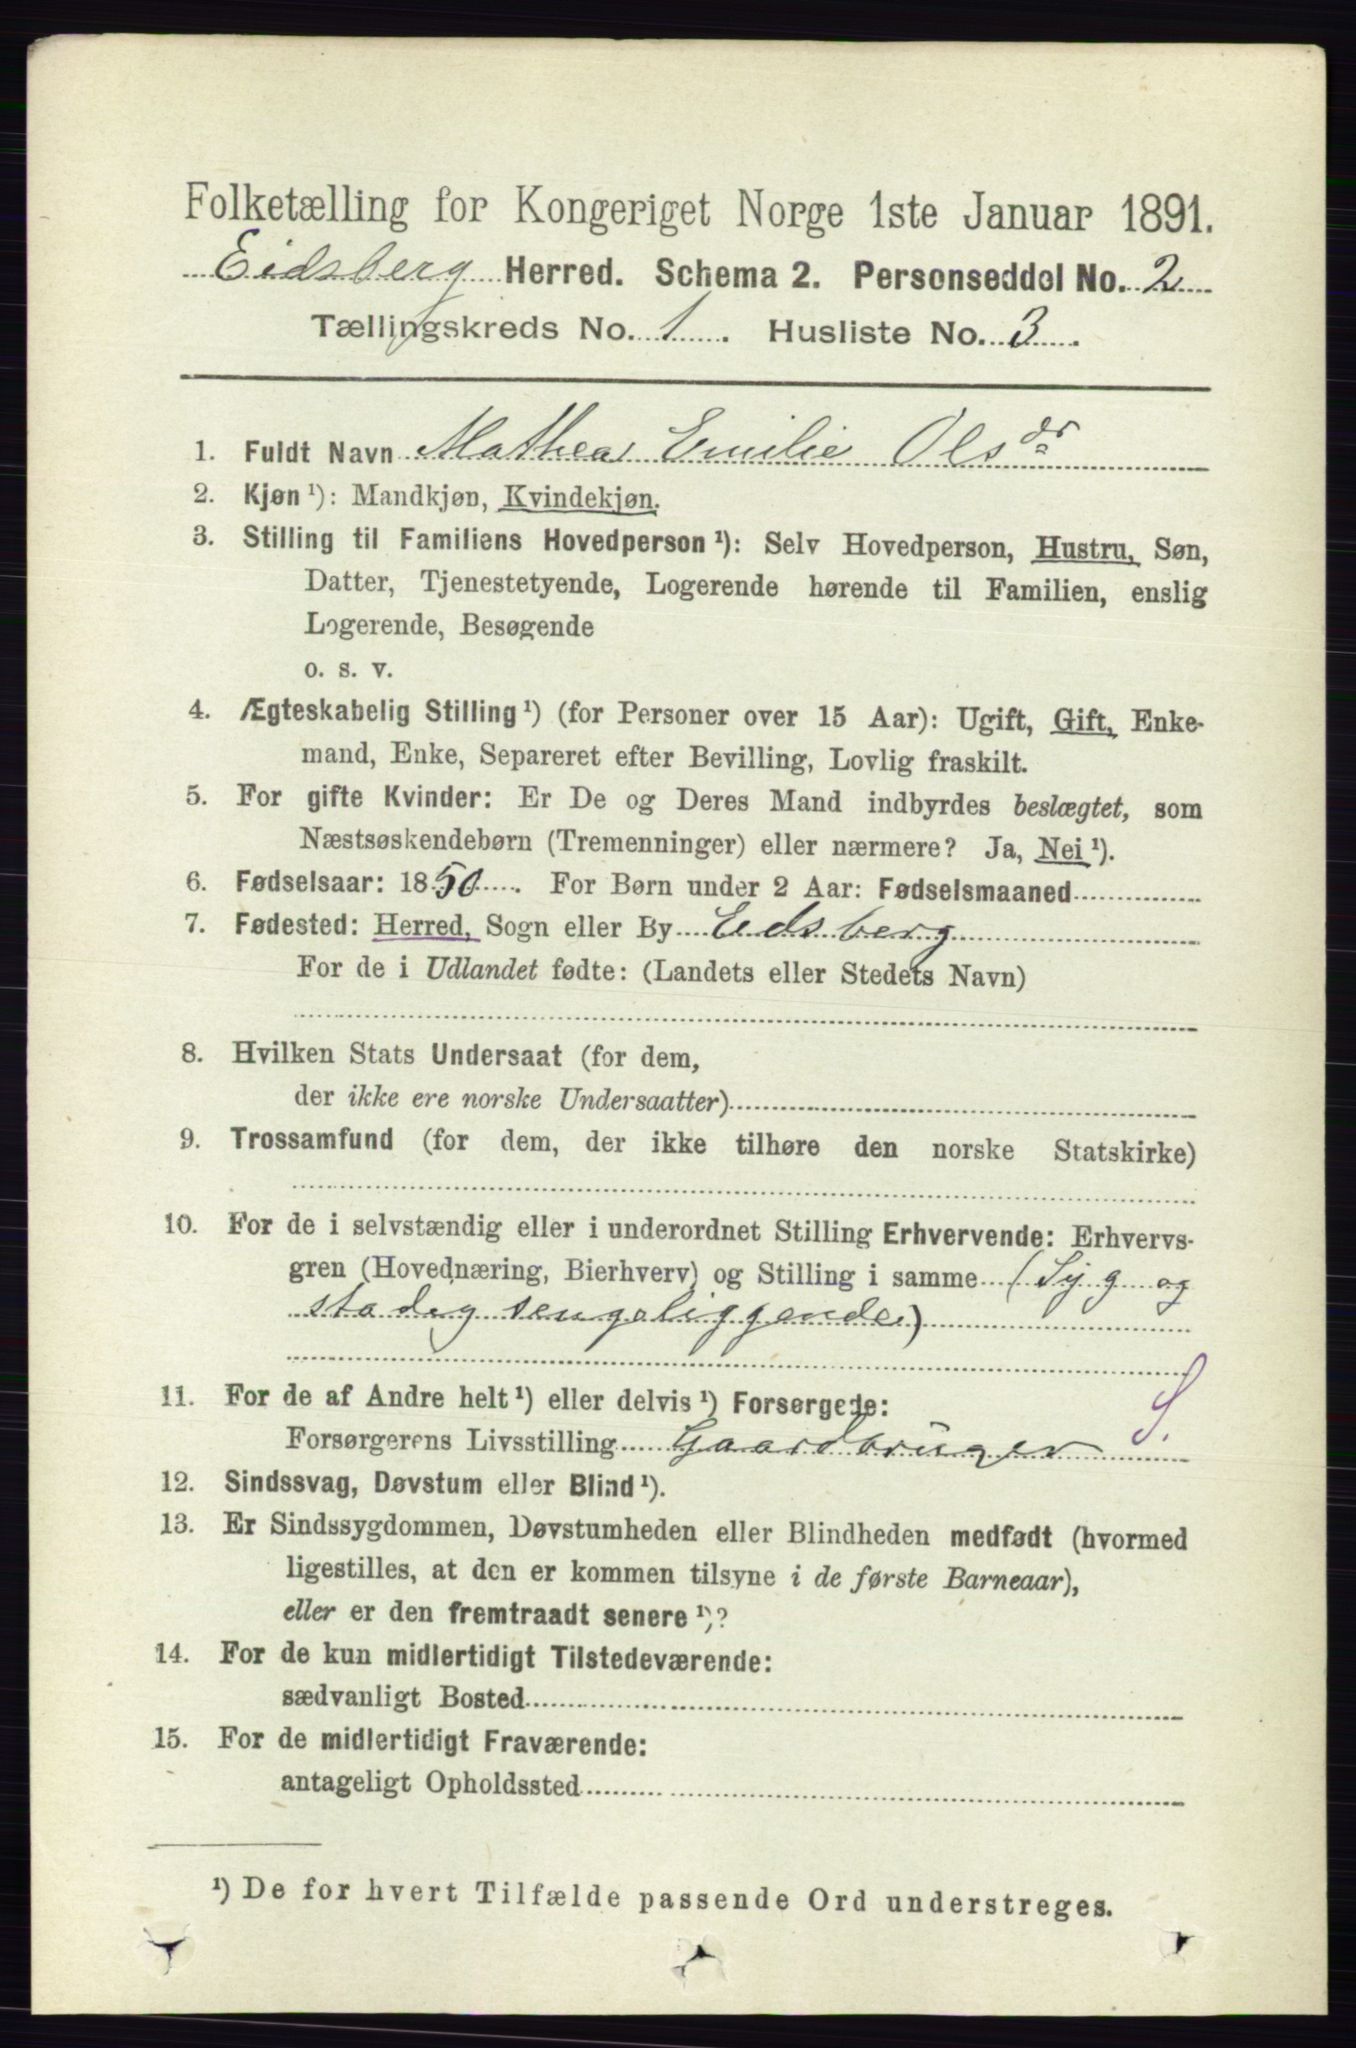 Folketælling for Kongeriget Norge 1ste Januar 1891.
Eidsberg Herred. Schema 2. Personseddel No. 2
Tællingskreds No. 1. Husliste No. 3.
1. Fuldt Navn Mathea Emilie Olsdr
2. Kjøn ¹): Mandkjøn, Kvindekjøn.
3. Stilling til Familiens Hovedperson ¹): Selv Hovedperson, Hustru, Søn,
Datter, Tjenestetyende, Logerende hørende til Familien, enslig
Logerende, Besøgende
o. s. v.
4. Ægteskabelig Stilling ¹) (for Personer over 15 Aar): Ugift, Gift, Enke-
mand, Enke, Separeret efter Bevilling, Lovlig fraskilt.
5. For gifte Kvinder: Er De og Deres Mand indbyrdes beslægtet, som
Næstsøskendebørn (Tremenninger) eller nærmere? Ja, Nei ¹).
6. Fødselsaar: 1850. For Børn under 2 Aar: Fødselsmaaned
7. Fødested: Herred, Sogn eller By Edsberg
For de i Udlandet fødte: (Landets eller Stedets Navn)
8. Hvilken Stats Undersaat (for dem,
der ikke ere norske Undersaatter)
9. Trossamfund (for dem, der ikke tilhøre den norske Statskirke)
10. For de i selvstændig eller i underordnet Stilling Erhvervende: Erhvervs-
gren (Hovednæring, Bierhverv) og Stilling i samme (Syg og
stadig sengeliggende)
11. For de af Andre helt ¹) eller delvis ¹) Forsørgede:
Forsørgerens Livsstilling Gaardbruger S.
12. Sindssvag, Døvstum eller Blind ¹).
13. Er Sindssygdommen, Døvstumheden eller Blindheden medfødt (hvormed
ligestilles, at den er kommen tilsyne i de første Barneaar),
eller er den fremtraadt senere ¹)?
14. For de kun midlertidigt Tilstedeværende:
sædvanligt Bosted
15. For de midlertidigt Fraværende:
antageligt Opholdssted
¹) De for hvert Tilfælde passende Ord understreges.